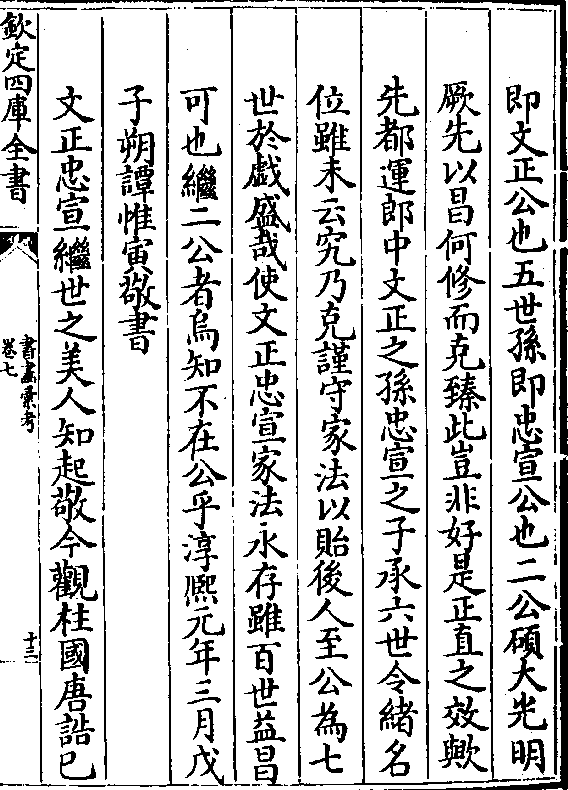 即文正公也五世孫即忠宣公也二公碩大光明
厥先以昌何修而克臻此豈非好是正直之效歟
先都運郎中文正之孫忠宣之子承六世令緒名
位雖未云究乃克謹守家法以貽後人至公為七
世於戲盛哉使文正忠宣家法永存雖百世益昌
可也繼二公者烏知不在公乎淳熈元年三月戊
子朔譚惟寅敬書
文正忠宣繼世之美人知起敬今觀柱國唐誥已
欽定四庫全書
書畫彚考
卷七
十三